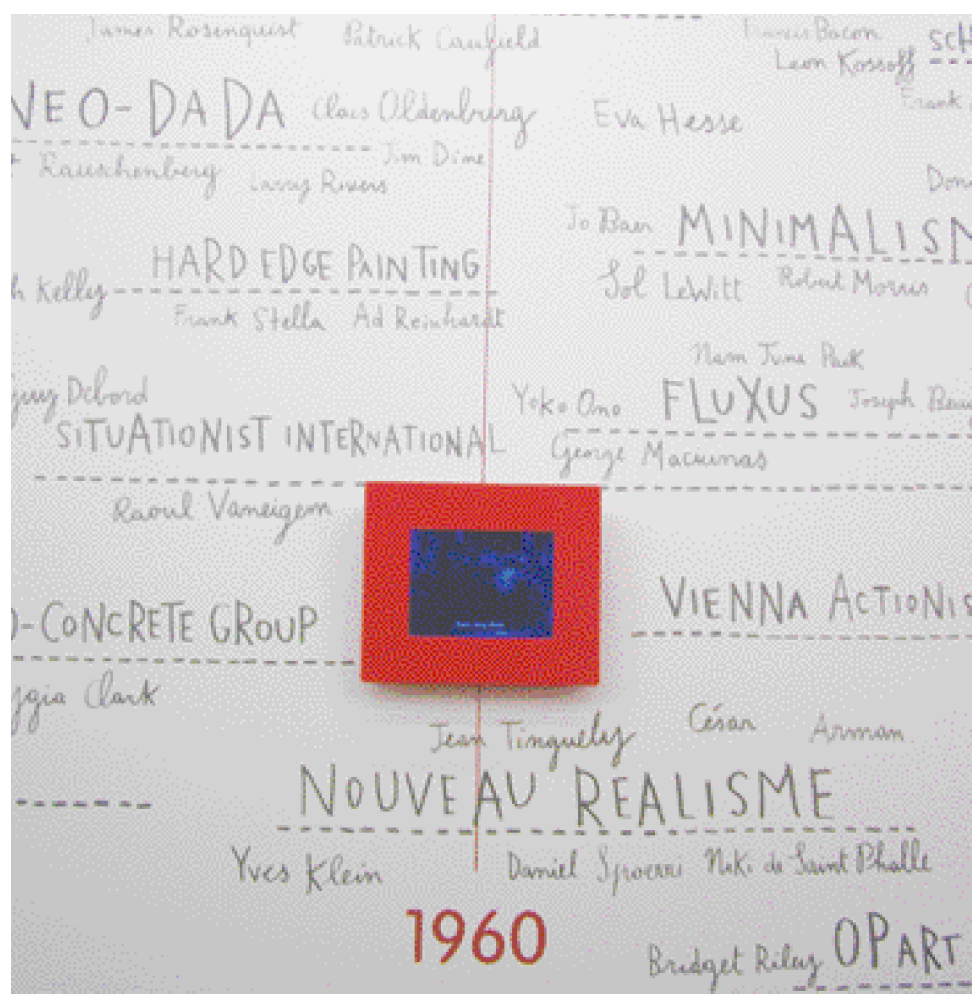 James Rosenquist Patrick Caufield
Francis Bacon
Leon Kossoff SCH
NEO-DADA Claes Oldenburg
Eva Hesse Frank
Rauschenberg Larry Rivers Jim Dine
Don
Jo Baer MINIMALISM
HARD EDGE PAINTING
h Kelly Sol LeWitt Robert Morris
Frank Stella Ad Reinhardt
Nam June Paik
Guy Debord Yoko Ono FLUXUS Joseph Beuy
SITUATIONIST INTERNATIONAL George Maciunas
Raoul Vaneigem
VIENNA ACTIONIS
O-CONCRETE GROUP
ygia Clark
Jean Tinguely César Arman
NOUVEAU REALISME
Yves Klein Daniel Spoerri Niki de Saint Phalle
1960
Bridget Riley OP ART